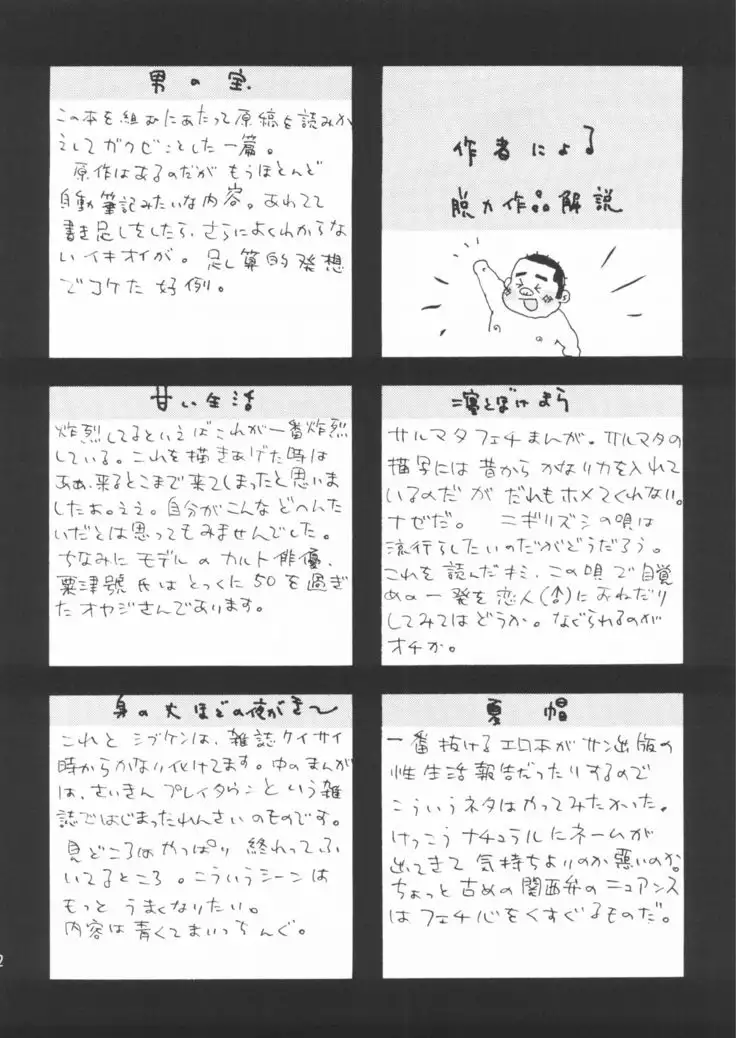 作者による
脱力作品解説
男の宝
この本を組むにあたって原稿を読みか
えしてガクゼンとした一篇。
原作はあるのだが もうほとんど
自動筆記みたいな内容。あわてて
書き足しをしたら、さらによくわからな
いイキオイが。足し算的発想
でコケた好例。
褌とぼけまら
サルマタフェチまんが。サルマタの
描写には昔から かなり力を入れて
いるのだが だれもホメてくれない。
ナゼだ。 ニギリズシの唄は
流行らしたいのだがどうだろう。
これを読んだキミ、この唄で目覚
めの一発を恋人(♂)におねだり
してみてはどうか。なぐられるのが
オチか。
甘い生活
炸烈してるといえばこれが一番炸烈
している。これを描きあげた時は
ああ、来るとこまで来てしまったと思いま
したよ。ええ。自分がこんなどへんた
いだとは思ってもみませんでした。
ちなみに モデルのカルト俳優、
粟津號氏はとっくに50を過ぎ
たオヤジさんであります。
夏帽
一番抜けるエロ本がサン出版の
性生活報告だったりするので
こういうネタはやってみたかった。
けっこうナチュラルにネームが
出てきて 気持ちよいのか悪いのか。
ちょっと古めの関西弁のニュアンス
はフェチ心をくすぐるものだ。
身の丈ほどの夜がき〜
これとシブケンは、雑誌ケイサイ
時からかなり化けてます。中のまんが
は、さいきんプレイタウンという雑
誌ではじまったれんさいのものです。
見どころはやっぱり 終わってふ
いてるところ。こういうシーンは
もっと うまくなりたい。
内容は青くてまいっちんぐ。
2